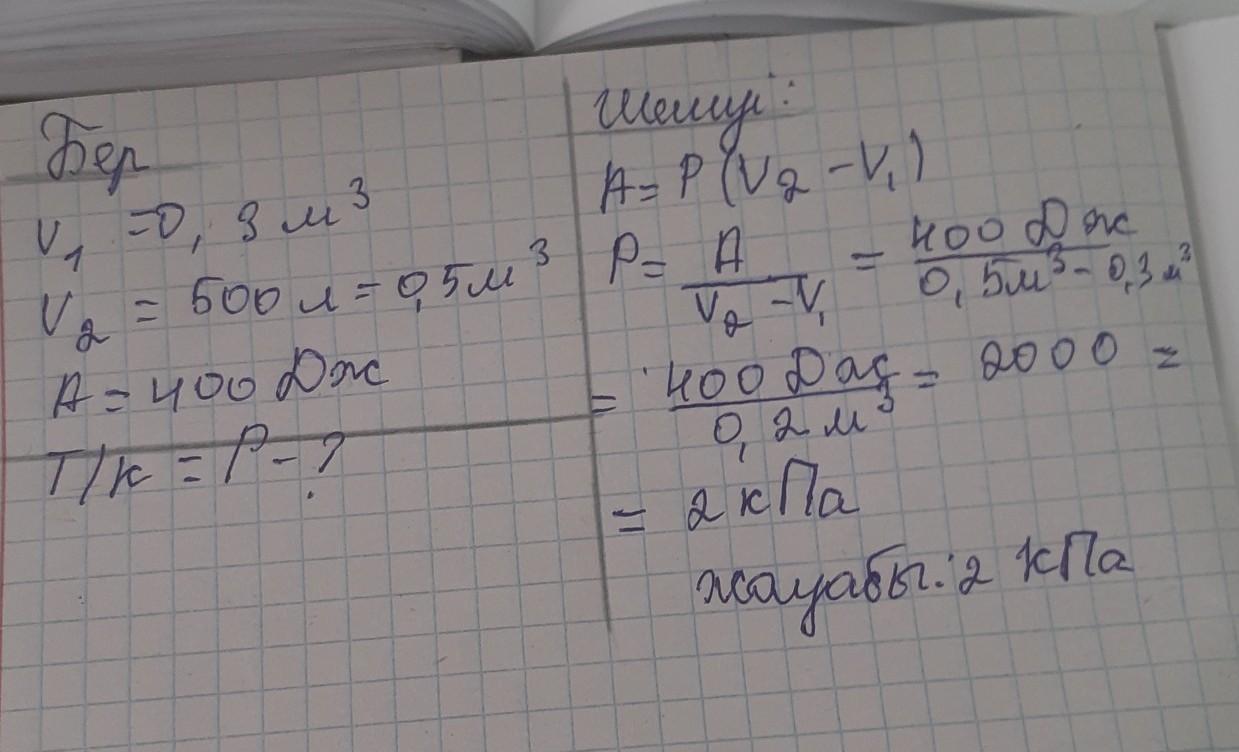 Бер
V₁ =0,3 м³
V₂ = 500 л = 0,5м³
A = 400 Дж
Т/к = P - ?
Шешуі:
A = P (V₂ - V₁)
P = A / V₂ - V₁ = 400 Дж / 0,5м³ - 0,3м³
= 400 Дж / 0,2 м³ = 2000 =
= 2 кПа
жауабы: 2 кПа